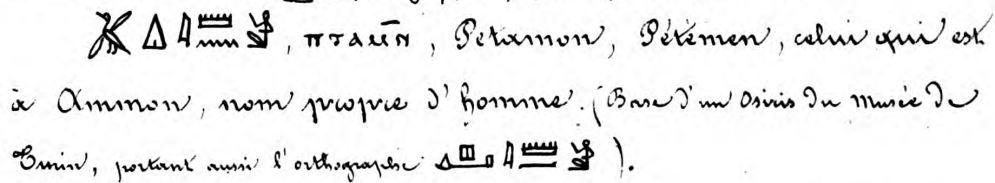 𓅯𓏙𓇋𓏠𓈖𓀭, ⲡⲧⲁⲙⲛ̄, Petamon, Pétémen, celui qui est
à Ammon, nom propre d'homme. (Base d'un Osiris du musée de
Turin, portant aussi l'orthographe 𓇋𓏠𓈖𓀭).